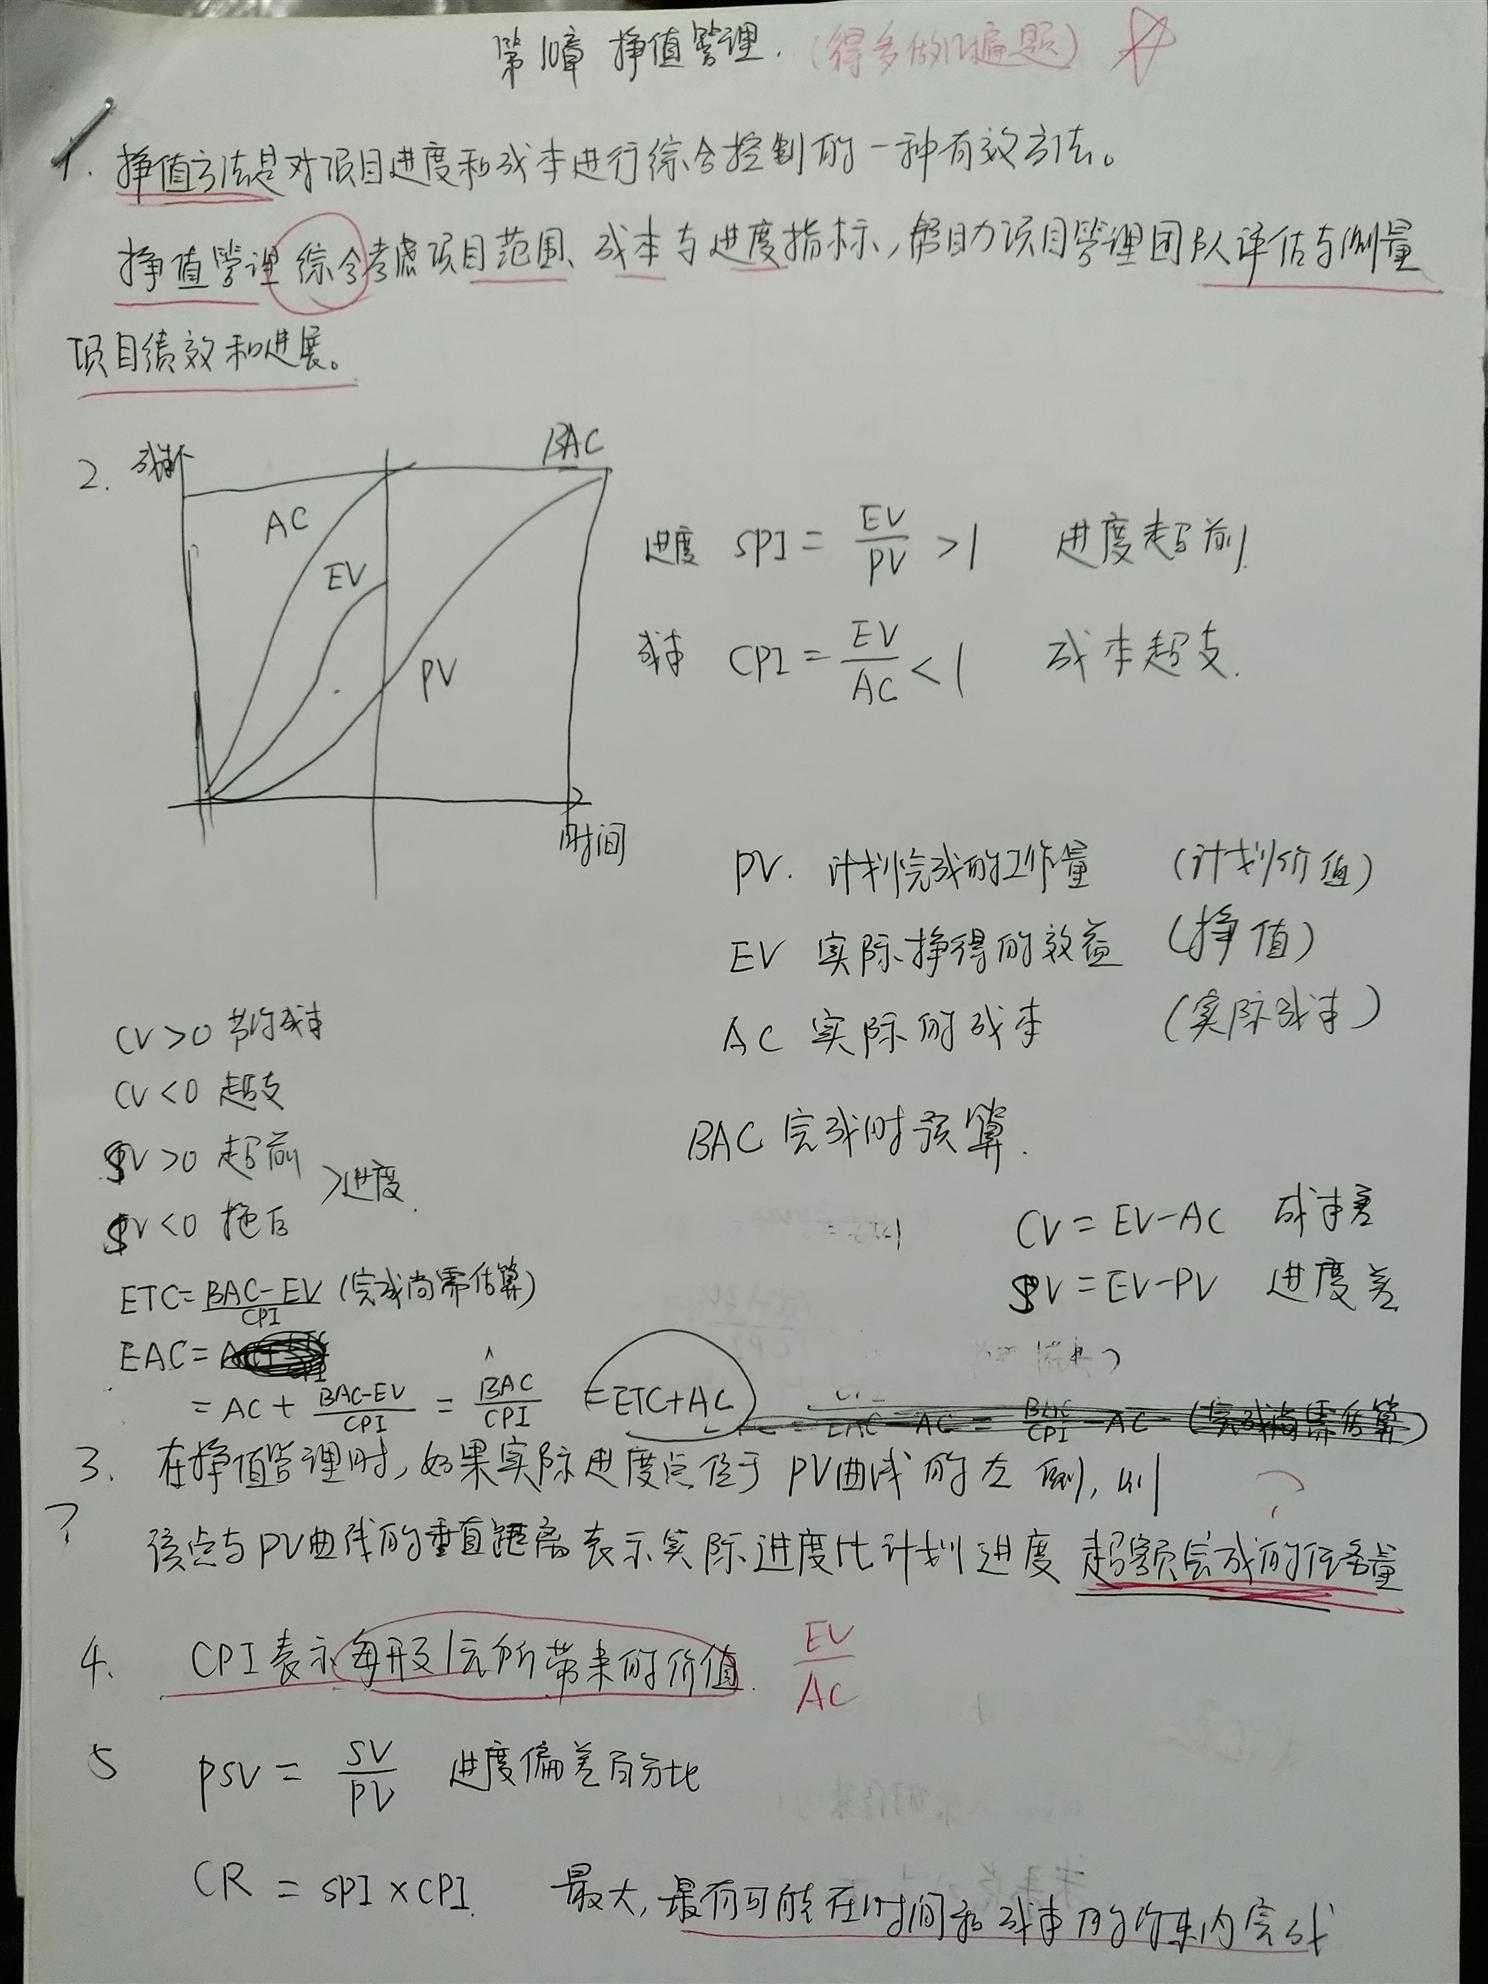 第10章 挣值管理. (得多做几遍题)
1. 挣值方法是对项目进度和成本进行综合控制的一种有效方法。
挣值管理综合考虑项目范围、成本与进度指标,帮助项目管理团队评估与测量
项目绩效和进展。
2. 成本
BAC
AC
EV
PV
时间
进度 SPI = EV/PV >1 进度超前.
成本 CPI = EV/AC <1 成本超支.
PV. 计划完成的工作量 (计划价值)
EV 实际挣得的效益 (挣值)
AC 实际的成本 (实际成本)
BAC 完成时预算.
CV>0 节约成本
CV<0 超支
SV>0 超前
SV<0 拖后
>进度.
CV = EV-AC 成本差
SV = EV-PV 进度差
ETC= BAC-EV/CPI (完成尚需估算)
EAC=
= AC + BAC-EV/CPI = BAC/CPI =ETC+AC
EAC-AC = BAC/CPI - AC (完成尚需估算)
3. 在挣值管理时,如果实际进度点位于PV曲线的左侧,则
? 该点与PV曲线的垂直距离表示实际进度比计划进度 超额完成的任务量
?
4. CPI表示每形1元所带来的价值. EV/AC
5 PSV = SV/PV 进度偏差百分比
CR = SPI×CPI. 最大,最有可能在时间和成本的约束内完成